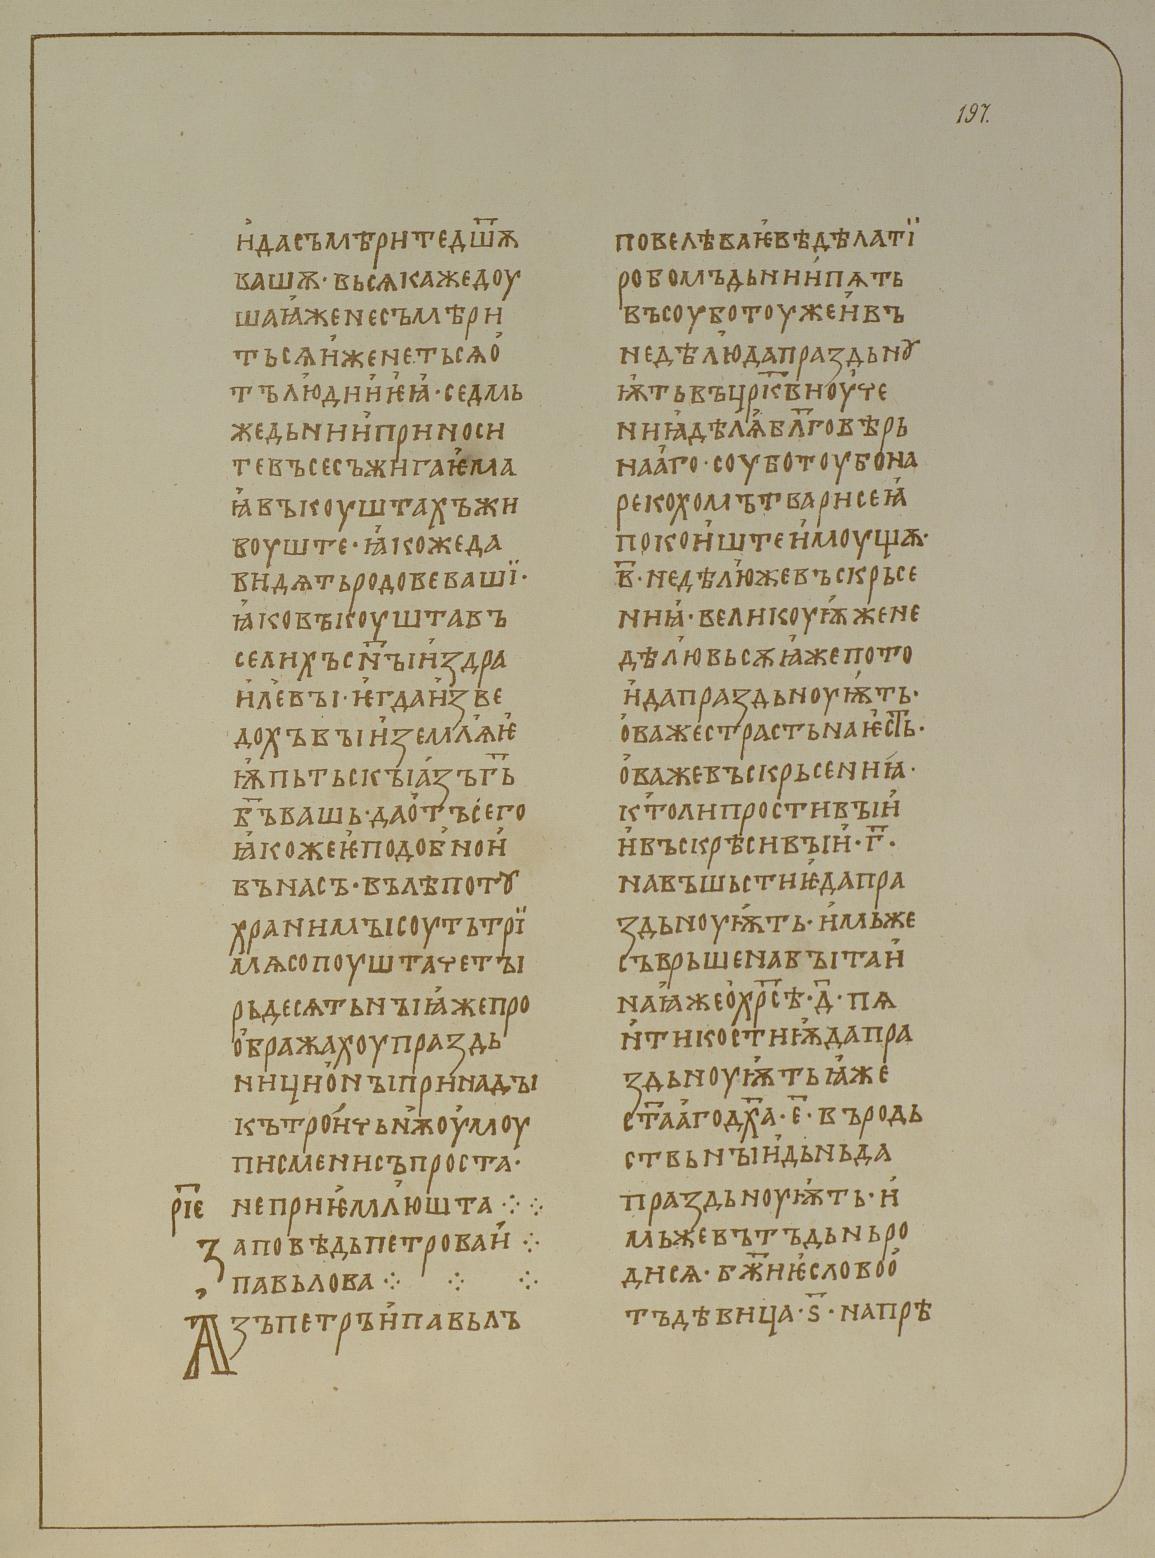 197.
и҆дасъмѣритедш҃ѫ
вашѫ·вьсѧкажедоу
шаꙗ҆женесъмѣри
тьсѧи҆женетьсѧо҆
тълю҆дии҆ѥ҆ꙗ҆·седмь
жедьнии҆приноси
тевъсесъжигаѥ҆ма
ꙗ҆въкоуштахъжи
воуште·ꙗ҆кожеда
видѧтьродовевашї·
ꙗ҆ковъкоуштавъ
селихъсн҃ъıи҆здра
и҆л҆евъı·ѥ҆гдаи҆зве
дохъвъıи҆земл҆ѧѥ҆
ѭ҆пьтьскъıа҆зъг҃ь
б҃ъвашь·дао҆тъсего
ꙗ҆кожеѥ҆подобнои҆
вънасъ·вълѣпотꙋ
хранимъısоутьтрї
мѧсопоуштачетъı
рьдесѧтьнъıꙗ҆жепро
о҆бражахоупраздь
ницио҆нъıпринадъı
кътрои҆чьнѫоу҆моу
писмениsъпроста·
р҃іе неприѥ҆млю҆шта ⁘ ⁘
заповѣдьпетроваи҆ ⁘
павьлова ⁘ ⁘ ⁘
Азъпетръи҆павьлъ
повелѣваѥ҆вѣдѣлатї
робомъдьнии҆пѧть
въсоуботоужеи҆въ
недѣлю҆дапраздьнꙋ
ѭ҆тьвъцр҃квноу҆че
ниꙗ҆дѣл҆ѧбл҃говѣрь
наа҆го·соуботоубона
рекохомътварисеꙗ҆
покои҆штеи҆моущѫ·
в҃·недѣлю҆жевъскрьсе
ниꙗ҆·великоуѭ҆жене
дѣл҆ювьсѫꙗ҆жепото
и҆дапраздьноуѭ҆ть·
о҆важестрастьнаѥ҆с҃ть·
о҆важевъскрьсениꙗ҆·
кт҆олипростивъıи҆
и҆въскрѣсивъıи҆·г҃·
навъшьстиѥ҆дапра
здьноуѭ҆ть·и҆мьже
съврьшенавъıтаи҆
наꙗ҆жео҆хр҃сѣ·д҃·пѧ
н҆тикостиѭ҆дапра
здьноуѭ҆тьꙗ҆же
ст҃аа҆годх҃а·е҃·въродь
ствьнъıи҆дьньда
праздьноуѭ҆ть·и҆
мьжевътъдьньро
дисѧ·бж҃иѥ҆словоо҆
тъдѣвица·ѕ҃·напрѣ